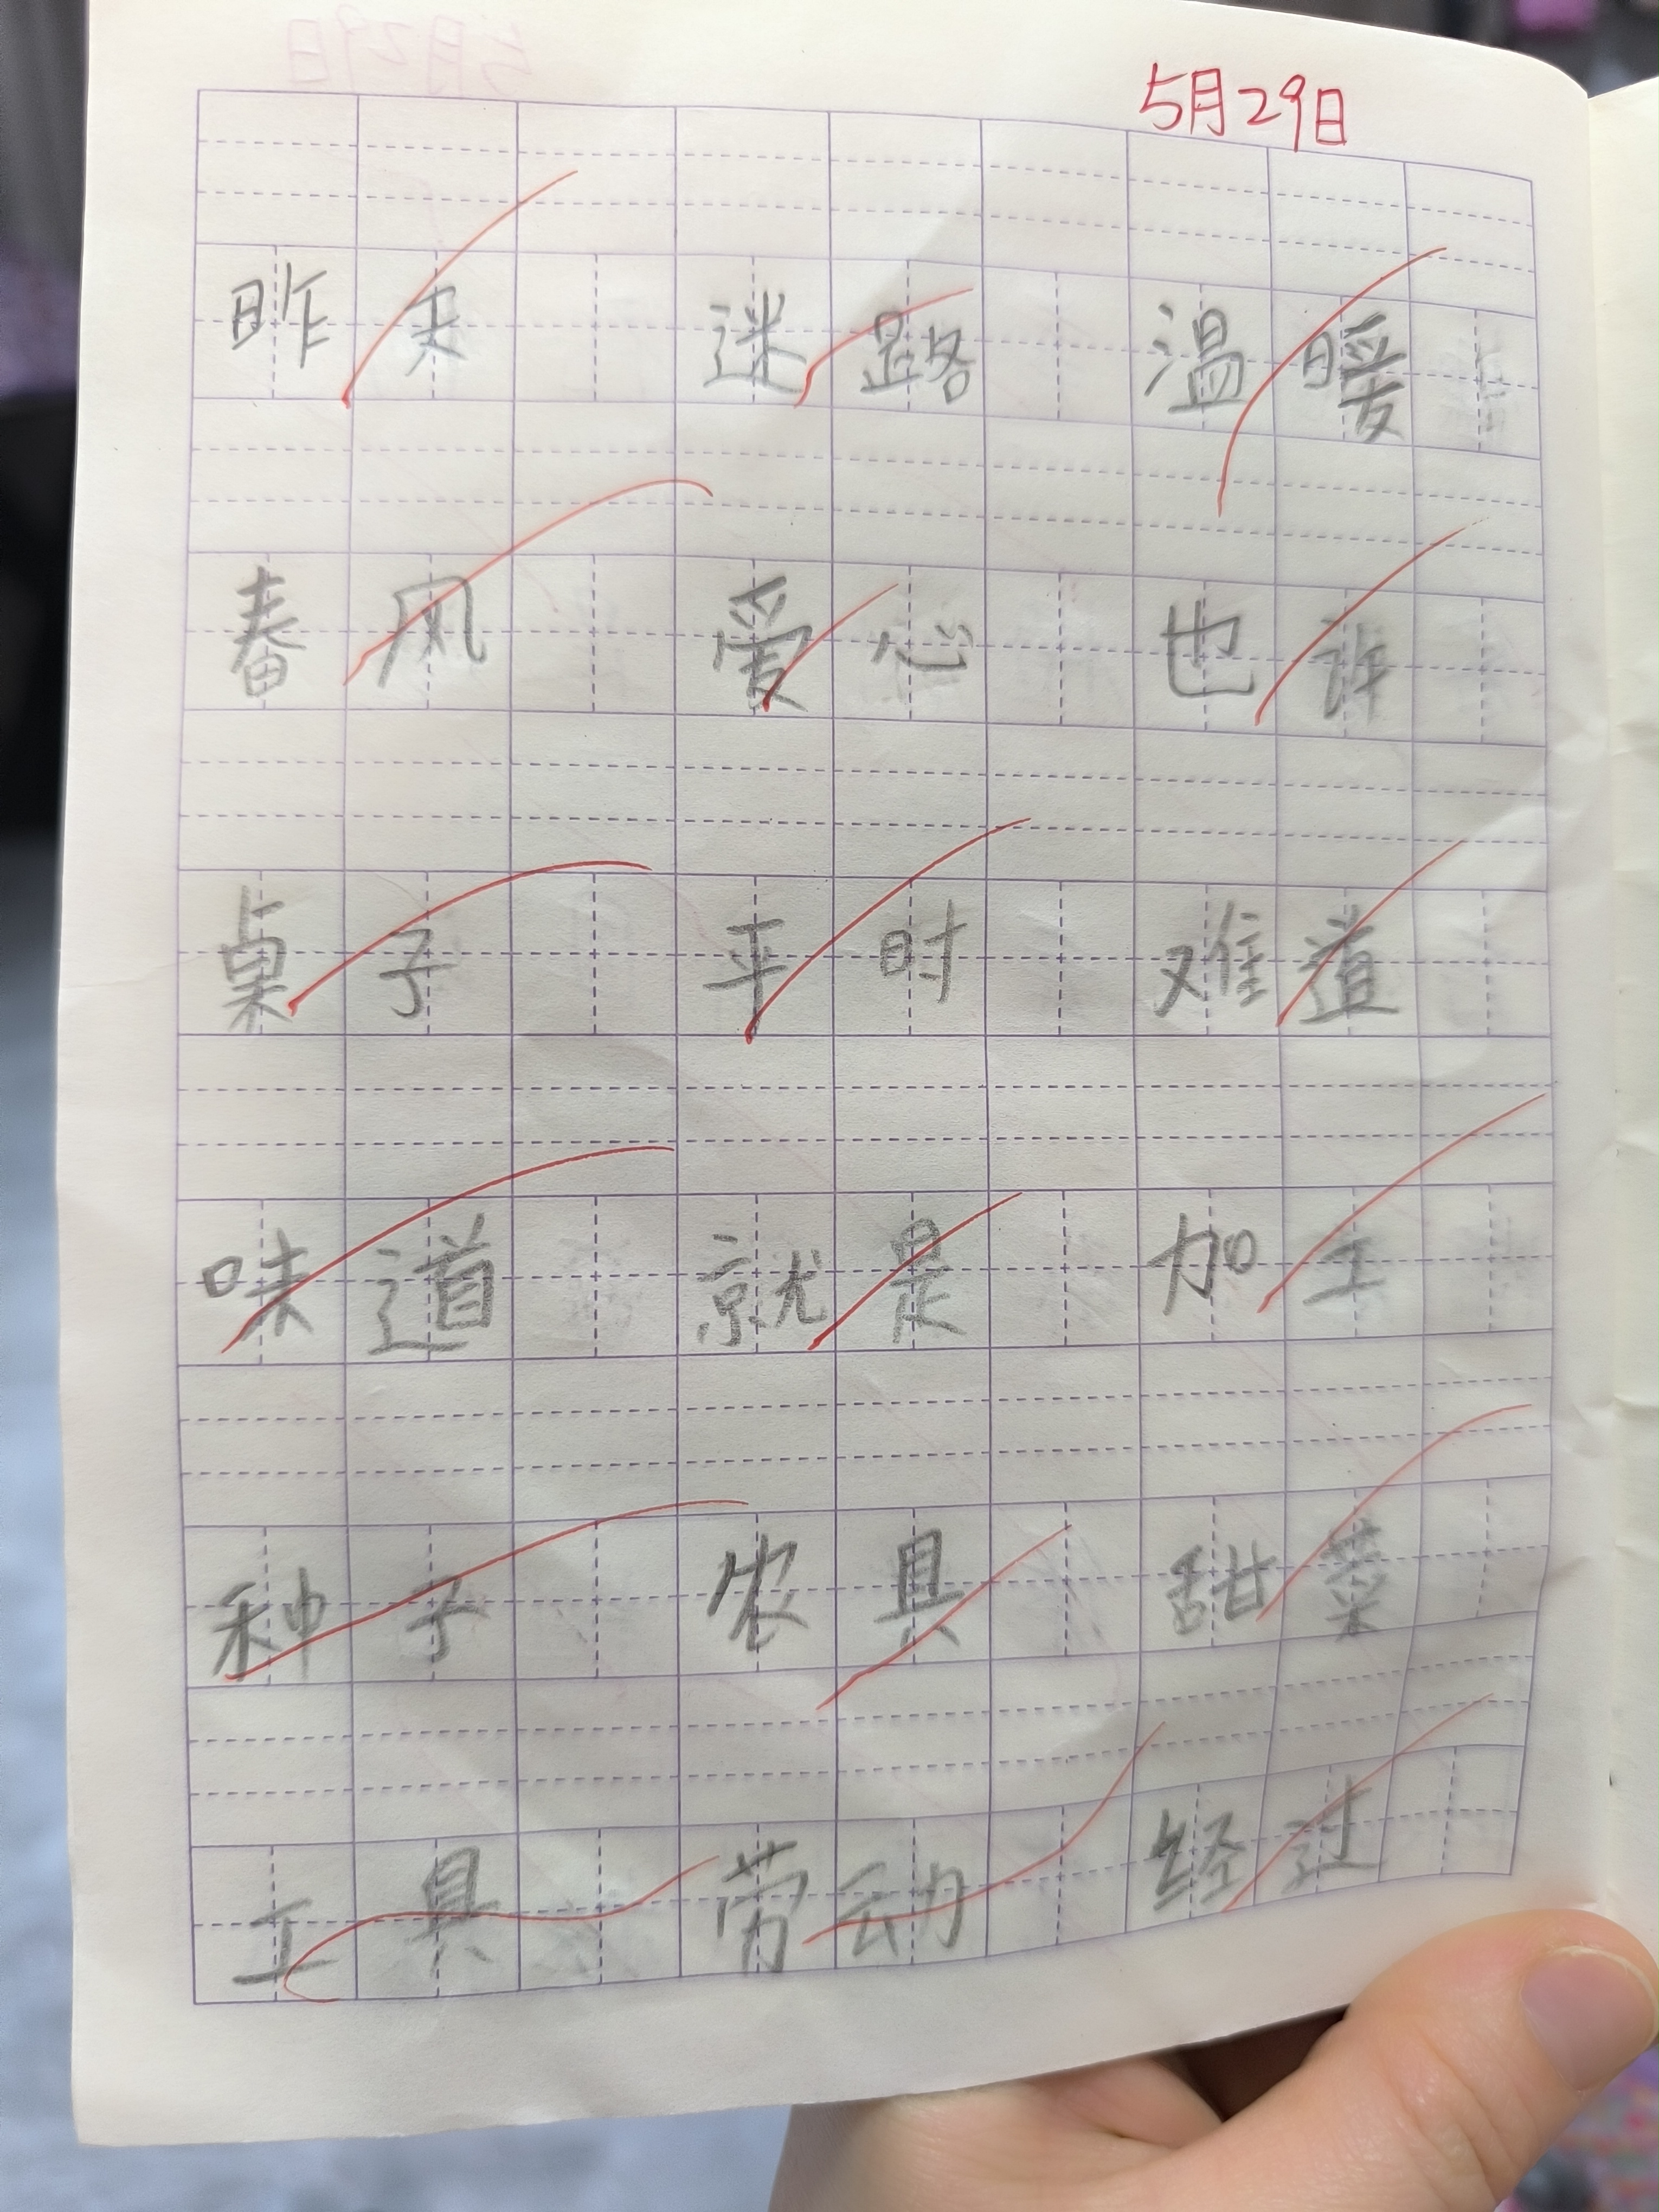 5月29日
昨天 迷路 温暖
春风 爱心 也许
桌子 平时 难道
味道 就是 加工
种子 农具 甜菜
工具 劳动 经过